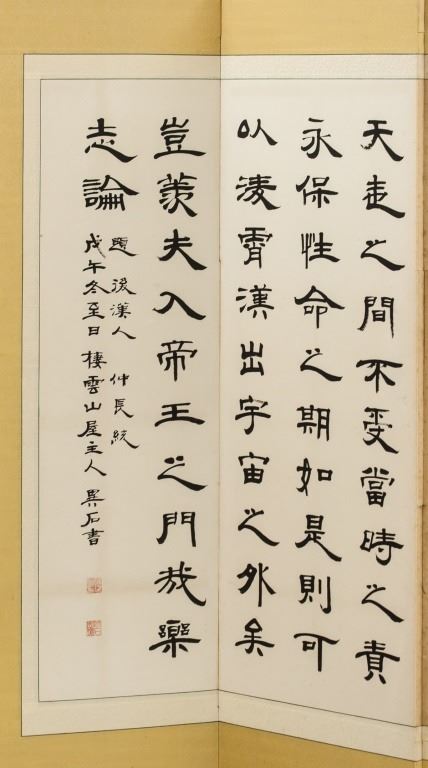 天地之間不受當時之責
永保性命之期如是則可
以淩霄漢出宇宙之外矣
豈羨夫入帝王之門哉樂
志論
題後漢人 仲長統
戊午冬至日棲雲山屋主人 石書